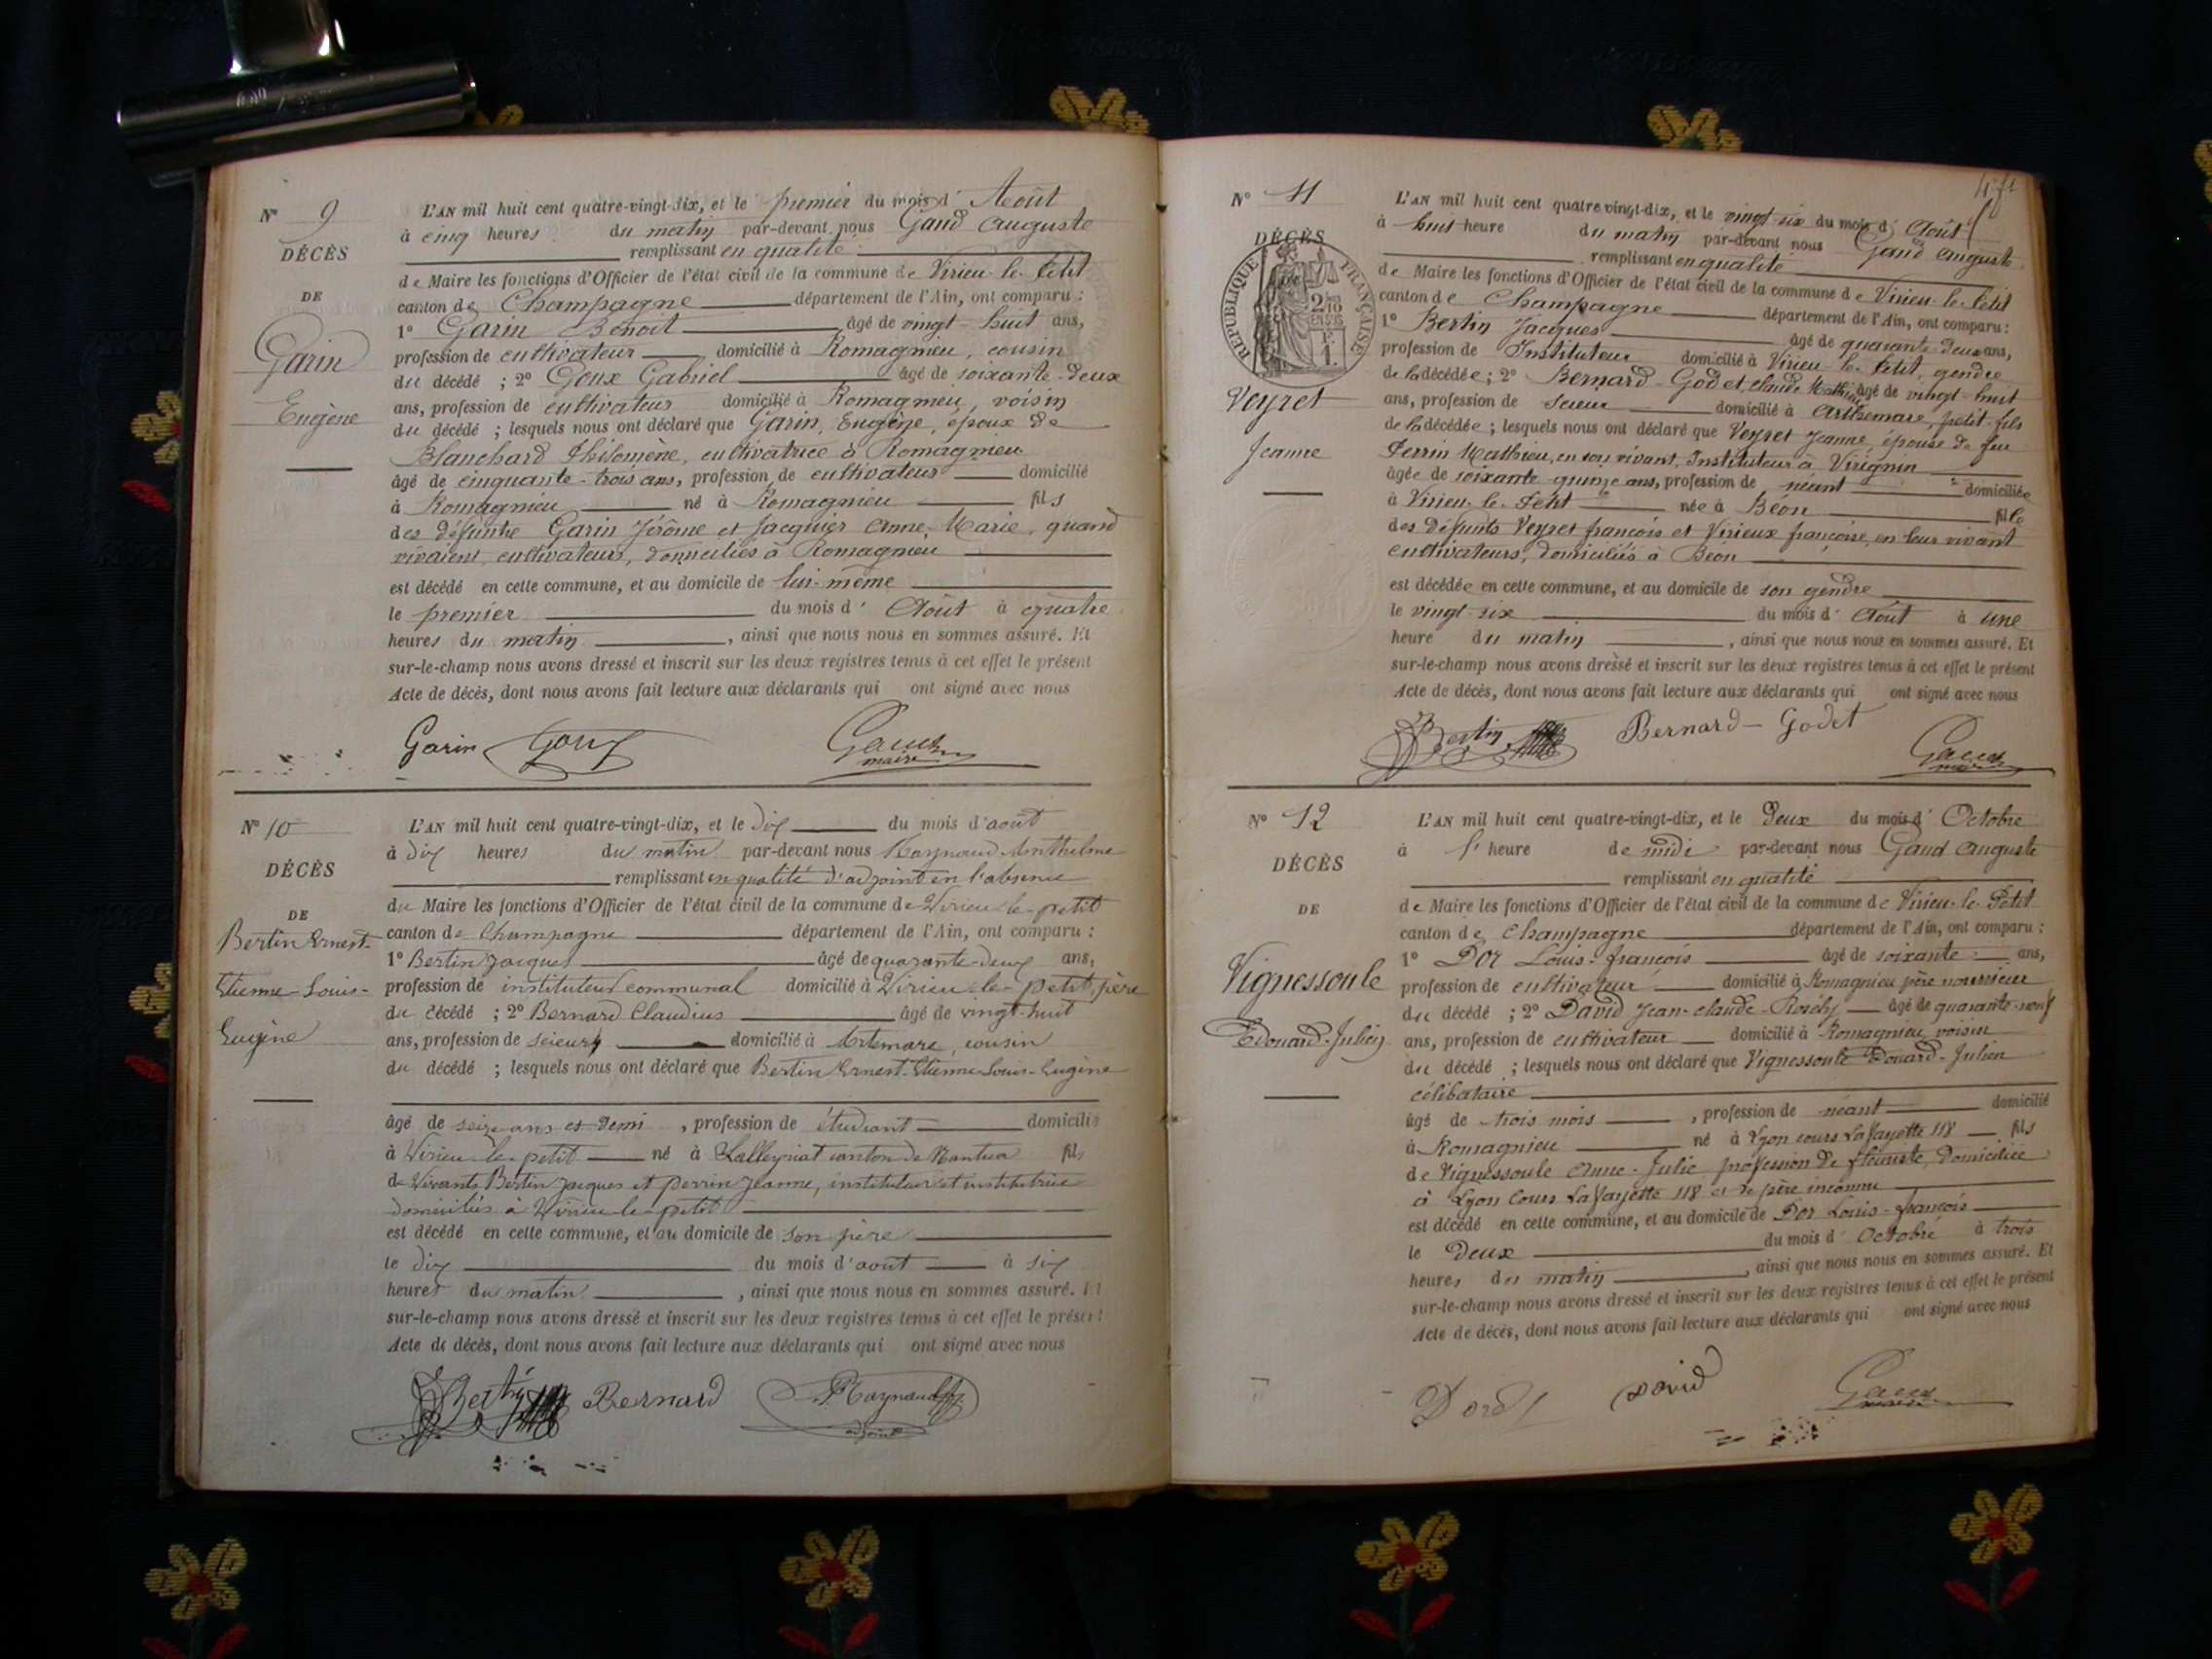 N° 9
DÉCÈS
DE
Garin
Eugène
L'AN mil huit cent quatre-vingt-dix, et le premier du mois d' Août
à cinq heures du matin par-devant nous Gaud Auguste
remplissant en qualité
de Maire les fonctions d'Officier de l'état civil de la commune de Virieu-le-Petit
canton de Champagne département de l'Ain, ont comparu :
1° Garin Benoit âgé de vingt-huit ans,
profession de cultivateur domicilié à Romagnieu, cousin
du décédé ; 2° Goux Gabriel âgé de soixante-deux
ans, profession de cultivateur domicilié à Romagnieu, voisin
du décédé ; lesquels nous ont déclaré que Garin, Eugène, époux de
Blanchard Philomène, cultivatrice à Romagnieu
âgé de cinquante-trois ans, profession de cultivateur domicilié
à Romagnieu né à Romagnieu fils
des défunts Garin Jérôme et Jacquier Anne-Marie, quand
vivaient, cultivateurs, domiciliés à Romagnieu
est décédé en cette commune, et au domicile de lui-même
le premier du mois d' Août à quatre
heures du matin , ainsi que nous nous en sommes assuré. Et
sur-le-champ nous avons dressé et inscrit sur les deux registres tenus à cet effet le présent
Acte de décès, dont nous avons fait lecture aux déclarants qui ont signé avec nous
Garin Goux Gaud
maire
N° 10
DÉCÈS
DE
Bertin Ernest-
Etienne-Louis-
Eugène
L'AN mil huit cent quatre-vingt-dix, et le dix du mois d'août
à dix heures du matin par-devant nous Raynaud Anthelme
remplissant en qualité d'adjoint en l'absence
du Maire les fonctions d'Officier de l'état civil de la commune de Virieu-le-petit
canton de Champagne département de l'Ain, ont comparu :
1° Bertin Jacques âgé de quarante-deux ans,
profession de instituteur communal domicilié à Virieu-le-petit, père
du décédé ; 2° Bernard Claudius âgé de vingt-huit
ans, profession de scieur domicilié à Artemare, cousin
du décédé ; lesquels nous ont déclaré que Bertin Ernest-Etienne-Louis-Eugène
âgé de seize ans et demi , profession de étudiant domicilié
à Virieu-le-petit né à Lalleyriat canton de Nantua fils
de Vivants Bertin Jacques et Perrin Jeanne, instituteur et institutrice
domiciliés à Virieu-le-petit
est décédé en cette commune, et au domicile de son père
le dix du mois d'août à six
heures du matin , ainsi que nous nous en sommes assuré. Et
sur-le-champ nous avons dressé et inscrit sur les deux registres tenus à cet effet le présent
Acte de décès, dont nous avons fait lecture aux déclarants qui ont signé avec nous
Bertin Bernard Raynaud
adjoint
N° 11
DÉCÈS
RÉPUBLIQUE FRANÇAISE
2/10 EN SUS
Veyret
Jeanne
L'AN mil huit cent quatre-vingt-dix, et le vingt-six du mois d' Août
à huit heure du matin par-devant nous Gaud Auguste
remplissant en qualité
de Maire les fonctions d'Officier de l'état civil de la commune de Virieu-le-Petit
canton de Champagne département de l'Ain, ont comparu :
1° Bertin Jacques âgé de quarante-deux ans,
profession de Instituteur domicilié à Virieu-le-Petit, gendre
de la décédée ; 2° Bernard-Godet, Claude Mathieu âgé de vingt-huit
ans, profession de scieur domicilié à Arthemare, petit-fils
de la décédée ; lesquels nous ont déclaré que Veyret Jeanne, épouse de feu
Perrin Mathieu, en son vivant, Instituteur à Virignin
âgée de soixante-quinze ans, profession de néant domiciliée
à Virieu-le-Petit née à Béon fille
des défunts Veyret françois et Virieux françoise, en leur vivant
cultivateurs, domiciliés à Béon
est décédée en cette commune, et au domicile de son gendre
le vingt-six du mois d' Août à une
heure du matin , ainsi que nous nous en sommes assuré. Et
sur-le-champ nous avons dressé et inscrit sur les deux registres tenus à cet effet le présent
Acte de décès, dont nous avons fait lecture aux déclarants qui ont signé avec nous
Bertin Bernard-Godet Gaud
maire
N° 12
DÉCÈS
DE
Vignessoule
Edouard-Julien
L'AN mil huit cent quatre-vingt-dix, et le deux du mois d' Octobre
à 1 heure de midi par-devant nous Gaud Auguste
remplissant en qualité
de Maire les fonctions d'Officier de l'état civil de la commune de Virieu-le-Petit
canton de Champagne département de l'Ain, ont comparu :
1° Dor Louis-françois âgé de soixante ans,
profession de cultivateur domicilié à Romagnieu père nourricier
du décédé ; 2° David Jean-claude âgé de quarante-neuf
ans, profession de cultivateur domicilié à Romagnieu, voisin
du décédé ; lesquels nous ont déclaré que Vignessoule Edouard-Julien
célibataire
âgé de trois mois , profession de néant domicilié
à Romagnieu né à Lyon cours Lafayette 118 fils
de Vignessoule Anne-Julie profession de fleuriste, domiciliée
à Lyon Cours Lafayette 118 et de père inconnu
est décédé en cette commune, et au domicile de Dor Louis-françois
le deux du mois d' Octobre à trois
heures du matin , ainsi que nous nous en sommes assuré. Et
sur-le-champ nous avons dressé et inscrit sur les deux registres tenus à cet effet le présent
Acte de décès, dont nous avons fait lecture aux déclarants qui ont signé avec nous
Dor David Gaud
maire